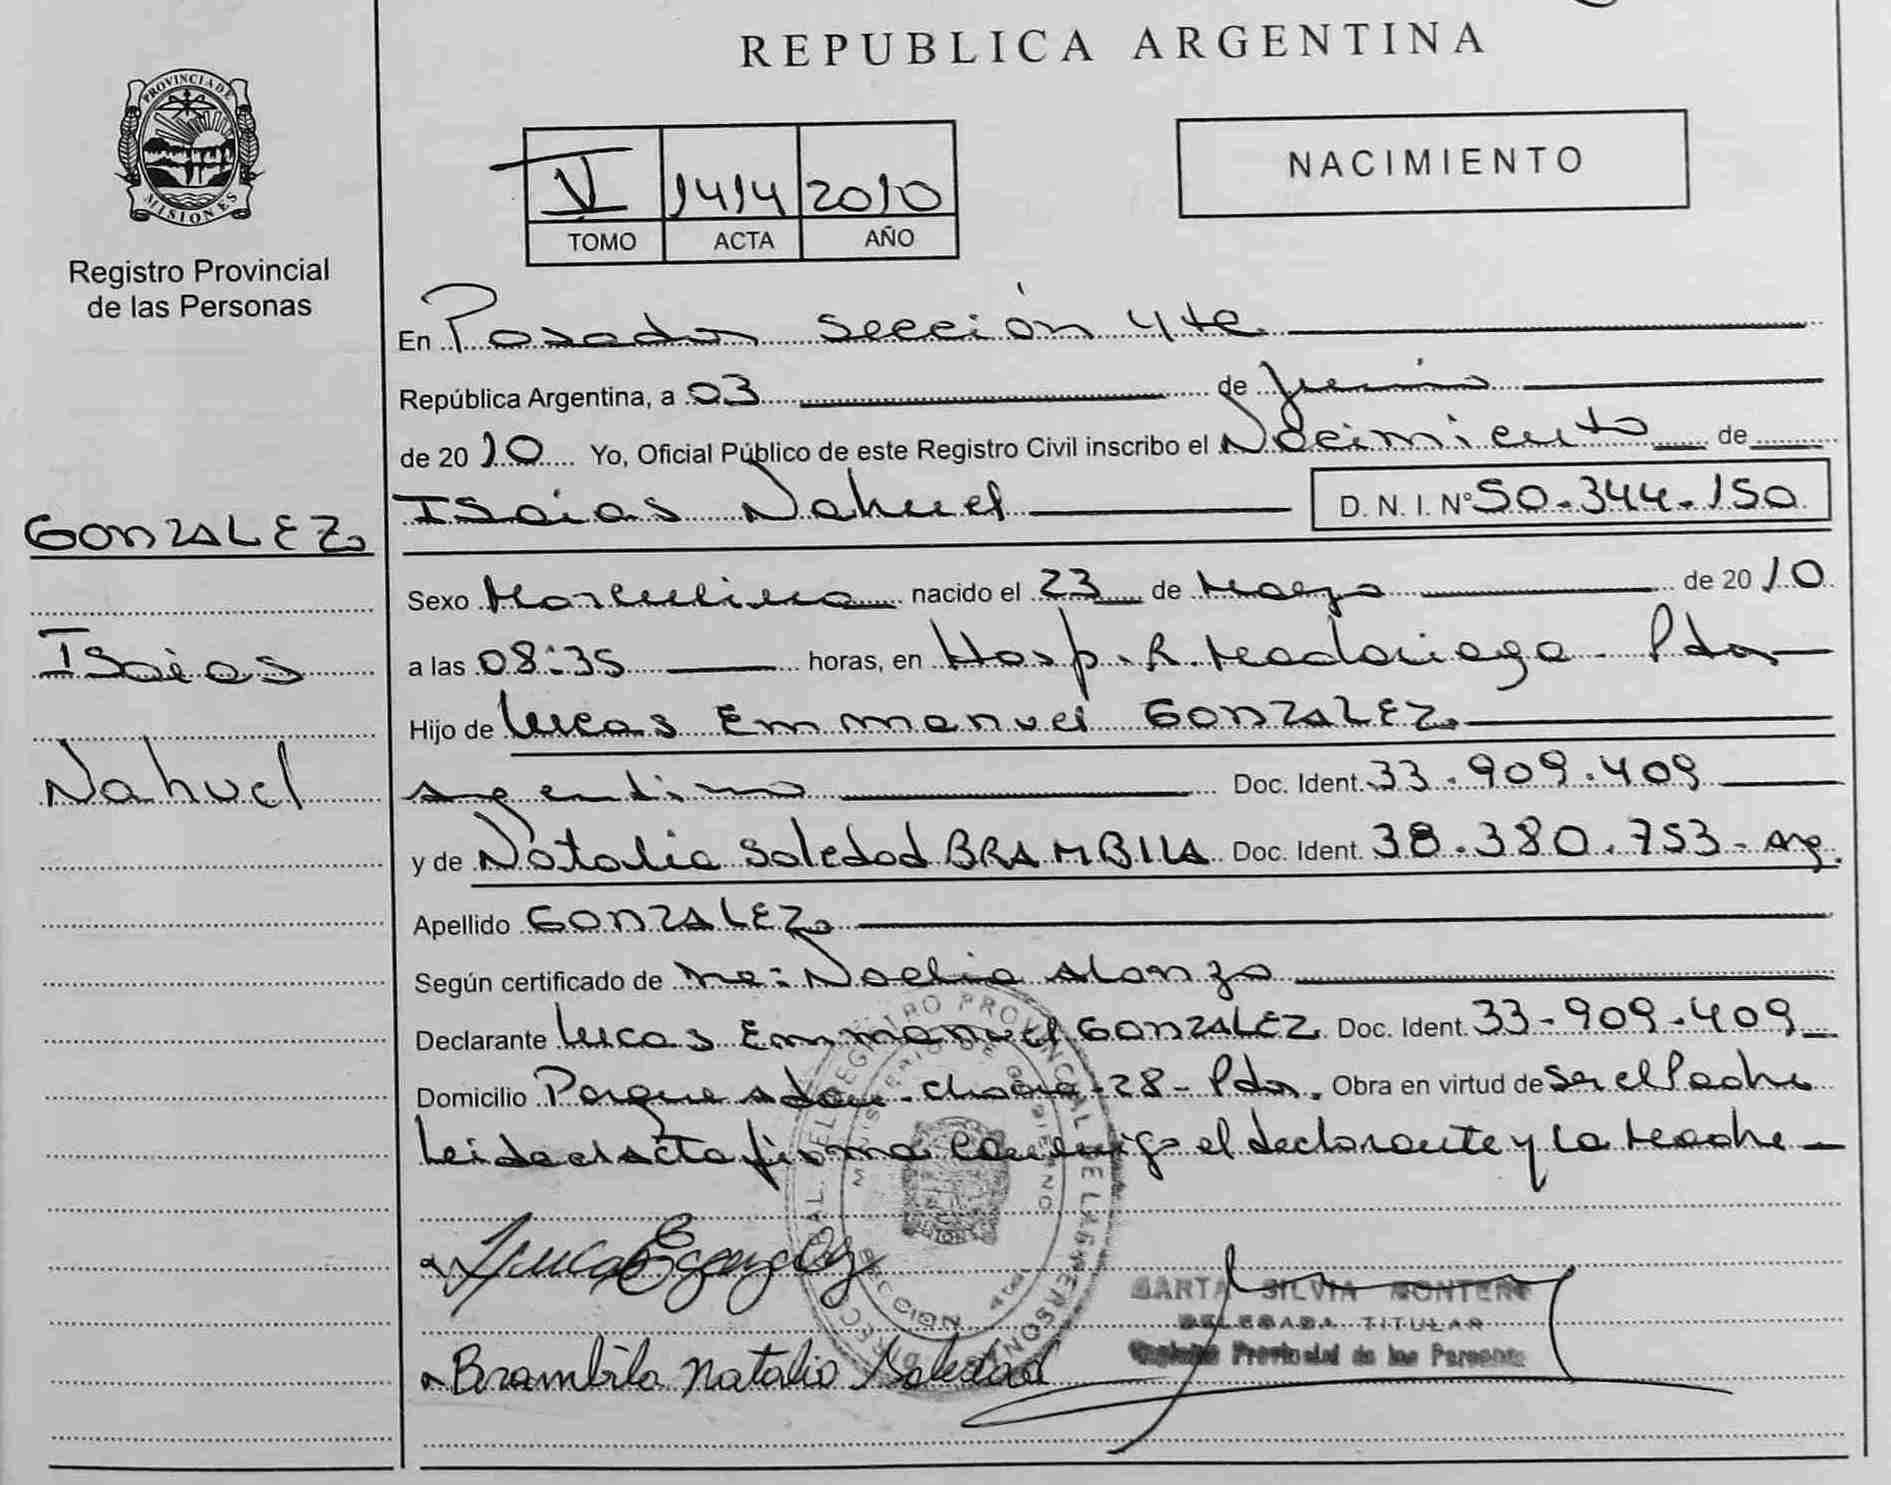 REPUBLICA ARGENTINA
PROVINCIA DE
MISIONES
Registro Provincial
de las Personas
V 1414 2010
TOMO ACTA AÑO
NACIMIENTO
GONZALEZ
Isaias
Nahuel
En Posadas sección 4ta
República Argentina, a 03 de Junio
de 2010 Yo, Oficial Público de este Registro Civil inscribo el Nacimiento de
Isaias Nahuel D. N. I. N° 50.344.150
Sexo Masculino nacido el 23 de Marzo de 2010
a las 08:35 horas, en Hosp. R. Madariaga - Pdas
Hijo de Lucas Emmanuel GONZALEZ
argentino Doc. Ident. 33.909.409
y de Natalia Soledad BRAMBILA Doc. Ident. 38.380.753 - Arg.
Apellido GONZALEZ
Según certificado de Noelia Alonzo
Declarante Lucas Emmanuel GONZALEZ Doc. Ident. 33-909-409
Domicilio Parque Adam - chacra - 28 - Pdas. Obra en virtud de Ser el Padre
Leida el acta firma conmigo el declarante y la Madre
Brambila Natalia Soledad
MARTA SILVIA MONTERO
DELEGADA TITULAR
Registro Provincial de las Personas